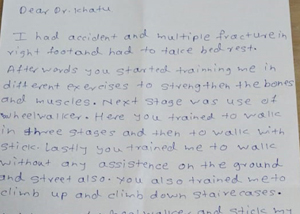 Dear Dr. Khatu
I had accident and multiple fracture in
right foot and had to take bed rest.
Afterwords you started trainning me in
different exercises to strengthen the bones
and muscles. Next stage was use of
wheelwalker. Here you trained to walk
in three stages and then to walk with
stick. Lastly you trained me to walk
without any assistence on the ground
and street also. You also trained me to
climb up and climb down staircases.
wheelwalker and stick my